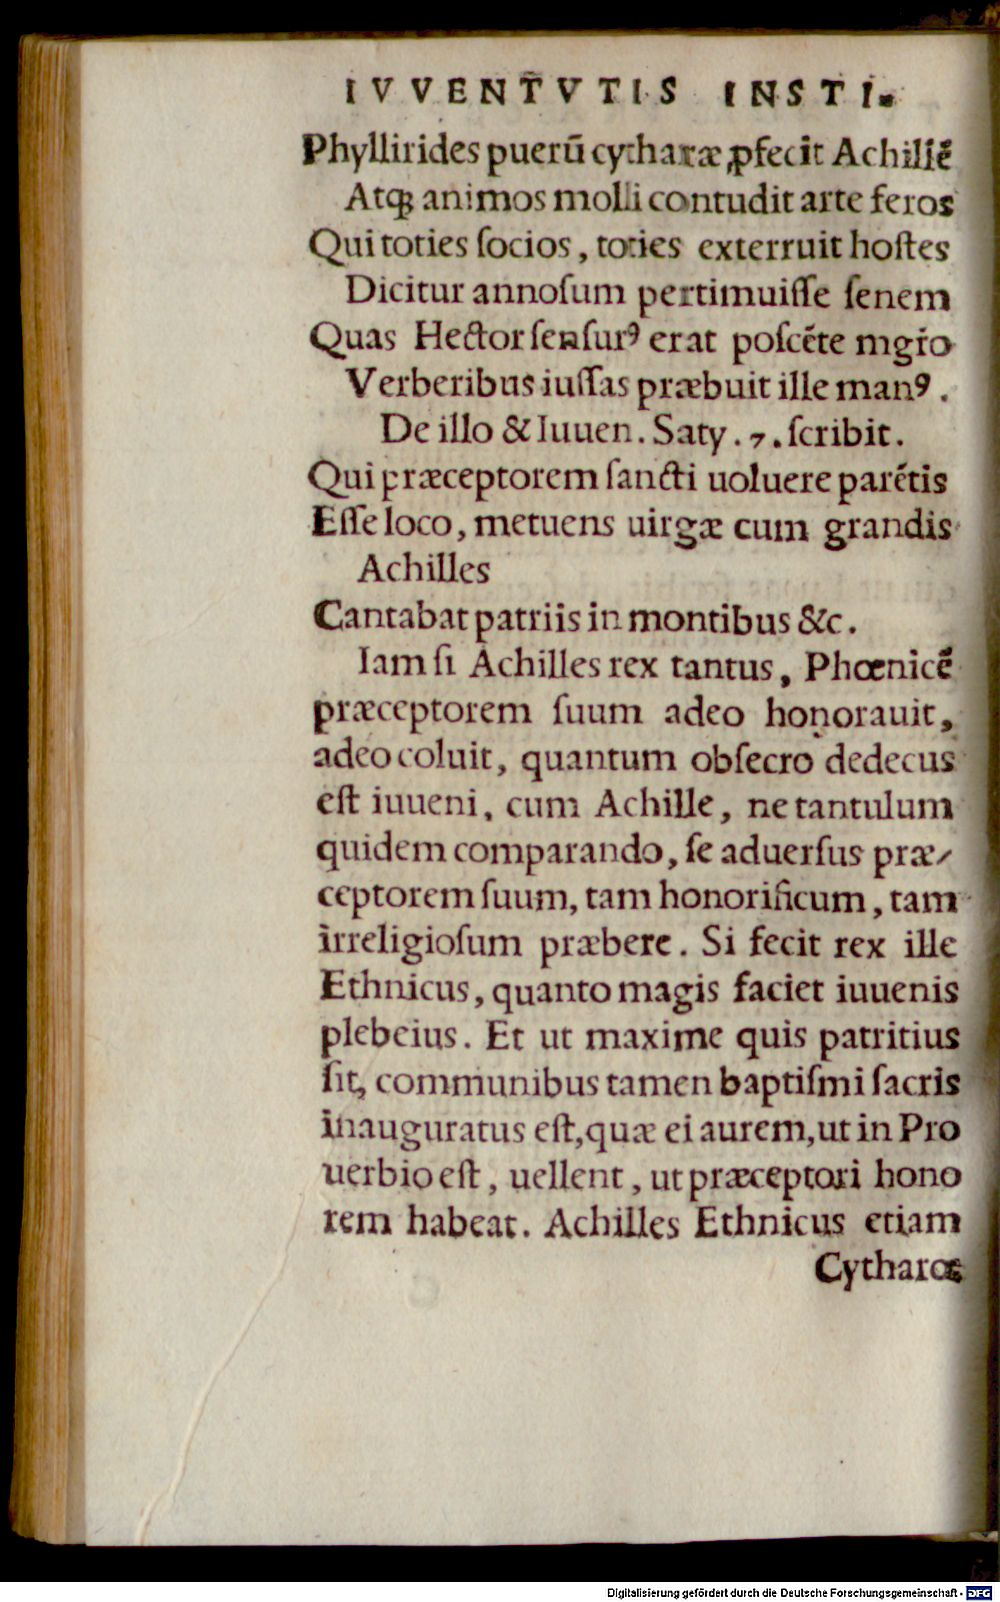 IVVENTVTIS INSTI.
Phyllirides puerū cytharæ ꝓfecit Achillē
Atq; animos molli contudit arte feros
Qui toties ſocios, toties exterruit hoſtes
Dicitur annoſum pertimuiſſe ſenem
Quas Hector ſenſurꝰ erat poſcēte mgr̄o
Verberibus iuſſas præbuit ille manꝰ.
De illo & Iuuen. Saty. 7. ſcribit.
Qui præceptorem ſancti uoluere parētis
Eſſe loco, metuens uirgæ cum grandis
Achilles
Cantabat patriis in montibus &c.
Iam ſi Achilles rex tantus, Phœnicē
præceptorem ſuum adeo honorauit,
adeo coluit, quantum obſecro dedecus
eſt iuueni, cum Achille, ne tantulum
quidem comparando, ſe aduerſus præ⸗
ceptorem ſuum, tam honorificum, tam
irreligioſum præbere. Si fecit rex ille
Ethnicus, quanto magis faciet iuuenis
plebeius. Et ut maxime quis patritius
ſit, communibus tamen baptiſmi ſacris
inauguratus eſt, quæ ei aurem, ut in Pro
uerbio eſt, uellent, ut præceptori hono
rem habeat. Achilles Ethnicus etiam
Cytharœ
Digitalisierung gefördert durch die Deutsche Forschungsgemeinschaft - DFG